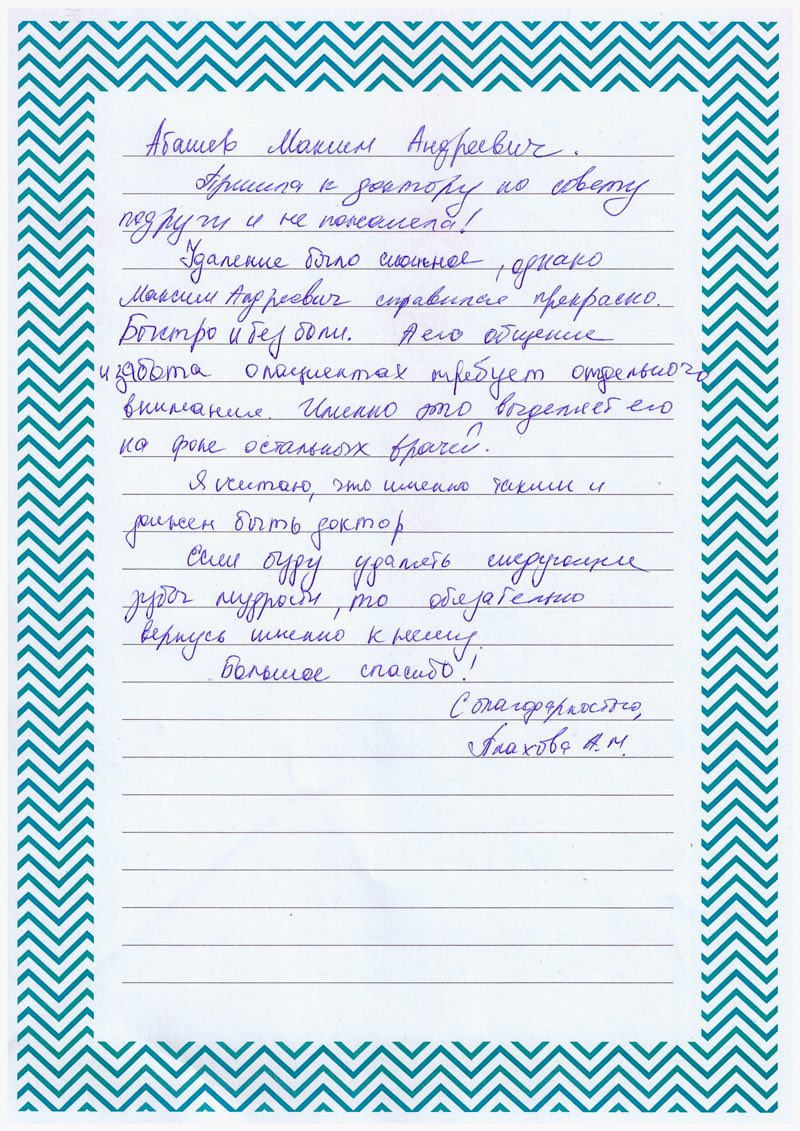 Абашев Максим Андреевич.
Пришла к доктору по совету
подруги и не пожалела!
Удаление было сложное, однако
Максим Андреевич справился прекрасно.
Быстро и без боли. А его общение
и забота о пациентах требует отдельного
внимания. Именно это выделяет его
на фоне остальных врачей.
Я считаю, что именно таким и
должен быть доктор
Если буду удалять следующие
зубы мудрости, то обязательно
вернусь именно к нему.
Большое спасибо!
С благодарностью,
Плахова А.М.